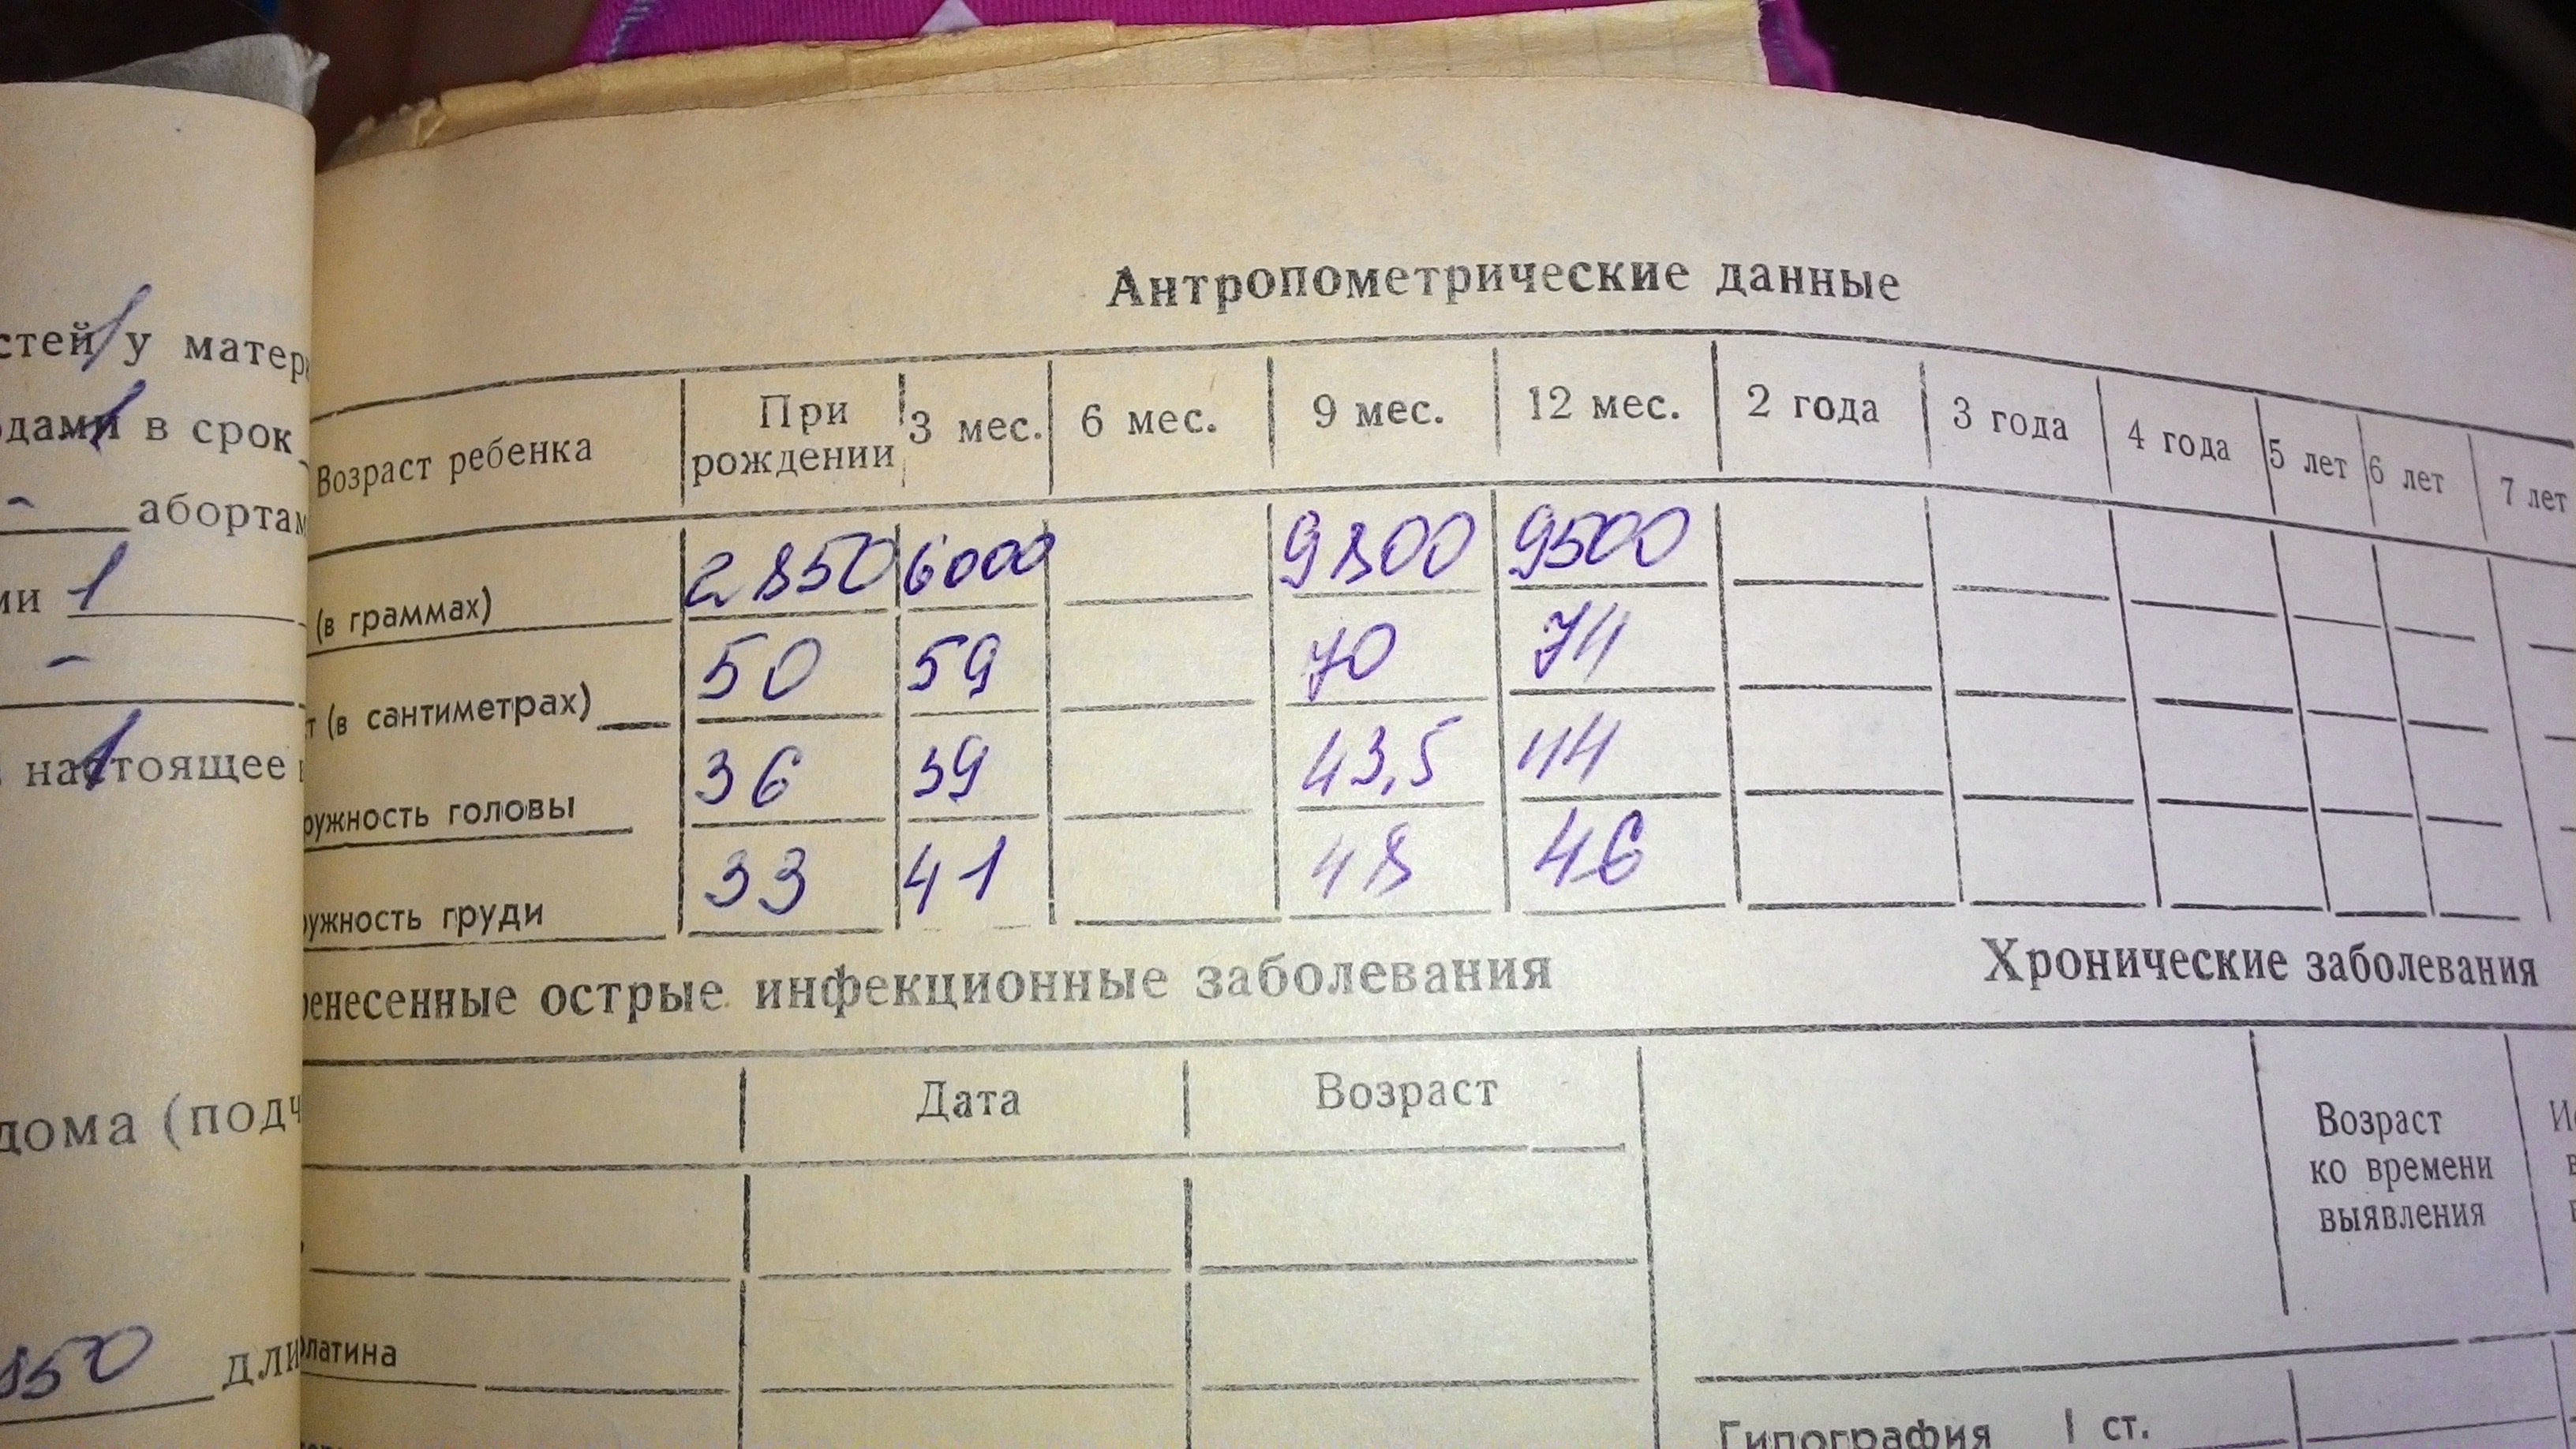 Антропометрические данные
стей у матер
Возраст ребенка При рождении 3 мес. 6 мес. 9 мес. 12 мес. 2 года 3 года 4 года 5 лет 6 лет 7 лет
одами в срок
- абортам
(в граммах) 2850 6000 9800 9500
ми 1
-
т (в сантиметрах) 50 59 70 74
настоящее
ружность головы 36 39 43,5 44
ужность груди 33 41 48 46
ренесенные острые инфекционные заболевания
Хронические заболевания
Дата Возраст
дома (подч
Возраст ко времени выявления
850 дли
латина
Гипография I ст.